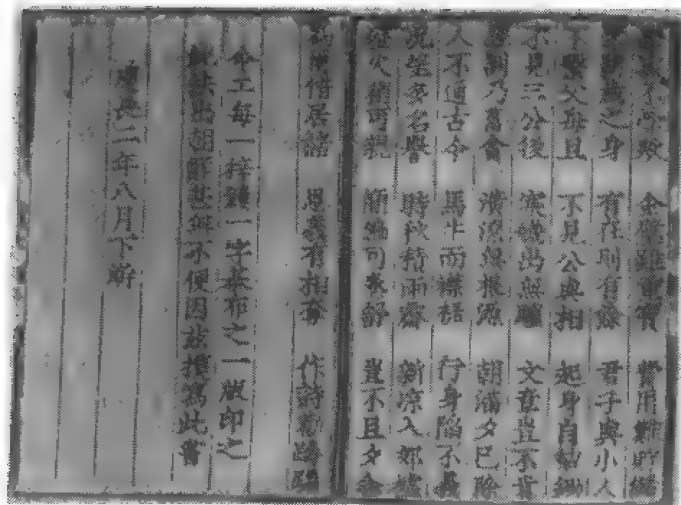 學與不學歟 金璧雖重寶 費用難貯儲
學問藏之身 身在則有餘 君子與小人
不繫父母且 不見公與相 起身自犁鋤
不見三公後 寒饑出無驢 文章豈不貴
經訓乃菑畬 潢潦無根源 朝滿夕已除
人不通古今 馬牛而襟裾 行身陷不義
況望多名譽 時秋積雨霽 新涼入郊墟
燈火稍可親 簡編可卷舒 豈不旦夕念
為爾惜居諸 恩義有相奪 作詩勸躊躇
命工每一梓鏤一字棊布之一版印之
此法出朝鮮甚無不便因茲摸寫此書
慶長二年八月下澣